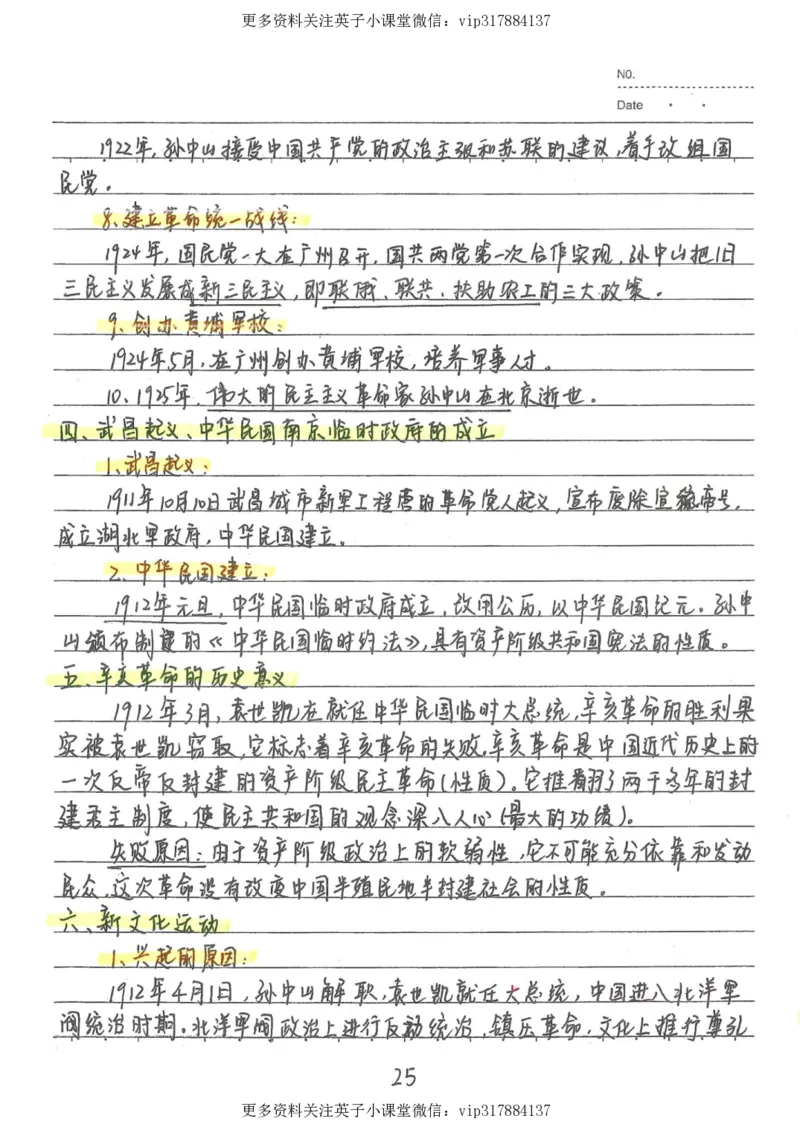 更多资料关注英子小课堂微信：vip317884137
No.
Date
1922年，孙中山接受中国共产党的政治主张和苏联的建议，着手改组国
民党。
8、建立革命统一战线：
1924年，国民党一大在广州召开，国共两党第一次合作实现，孙中山把旧
三民主义发展成新三民主义，即联俄、联共、扶助农工的三大政策。
9、创办黄埔军校：
1924年5月，在广州创办黄埔军校，培养军事人才。
10、1925年，伟大的民主主义革命家孙中山在北京逝世。
四、武昌起义、中华民国南京临时政府的成立
1、武昌起义：
1911年10月10日武昌城市新军工程营的革命党人起义，宣布废除宣统帝号，
成立湖北军政府，中华民国建立。
2、中华民国建立：
1912年元旦，中华民国临时政府成立，改用公历，以中华民国纪元。孙中
山颁布制定的《中华民国临时约法》，具有资产阶级共和国宪法的性质。
五、辛亥革命的历史意义
1912年3月，袁世凯在就任中华民国临时大总统，辛亥革命的胜利果
实被袁世凯窃取，它标志着辛亥革命的失败。辛亥革命是中国近代历史上的
一次反帝反封建的资产阶级民主革命（性质）。它推翻了两千多年的封
建君主制度，使民主共和国的观念深入人心（最大的功绩）。
失败原因：由于资产阶级政治上的软弱性，它不可能充分依靠和发动
民众，这次革命没有改变中国半殖民地半封建社会的性质。
六、新文化运动
1、兴起的原因：
1912年4月1日，孙中山解职，袁世凯就任大总统，中国进入北洋军
阀统治时期。北洋军阀政治上进行反动统治，镇压革命，文化上推行尊孔
25
更多资料关注英子小课堂微信：vip317884137